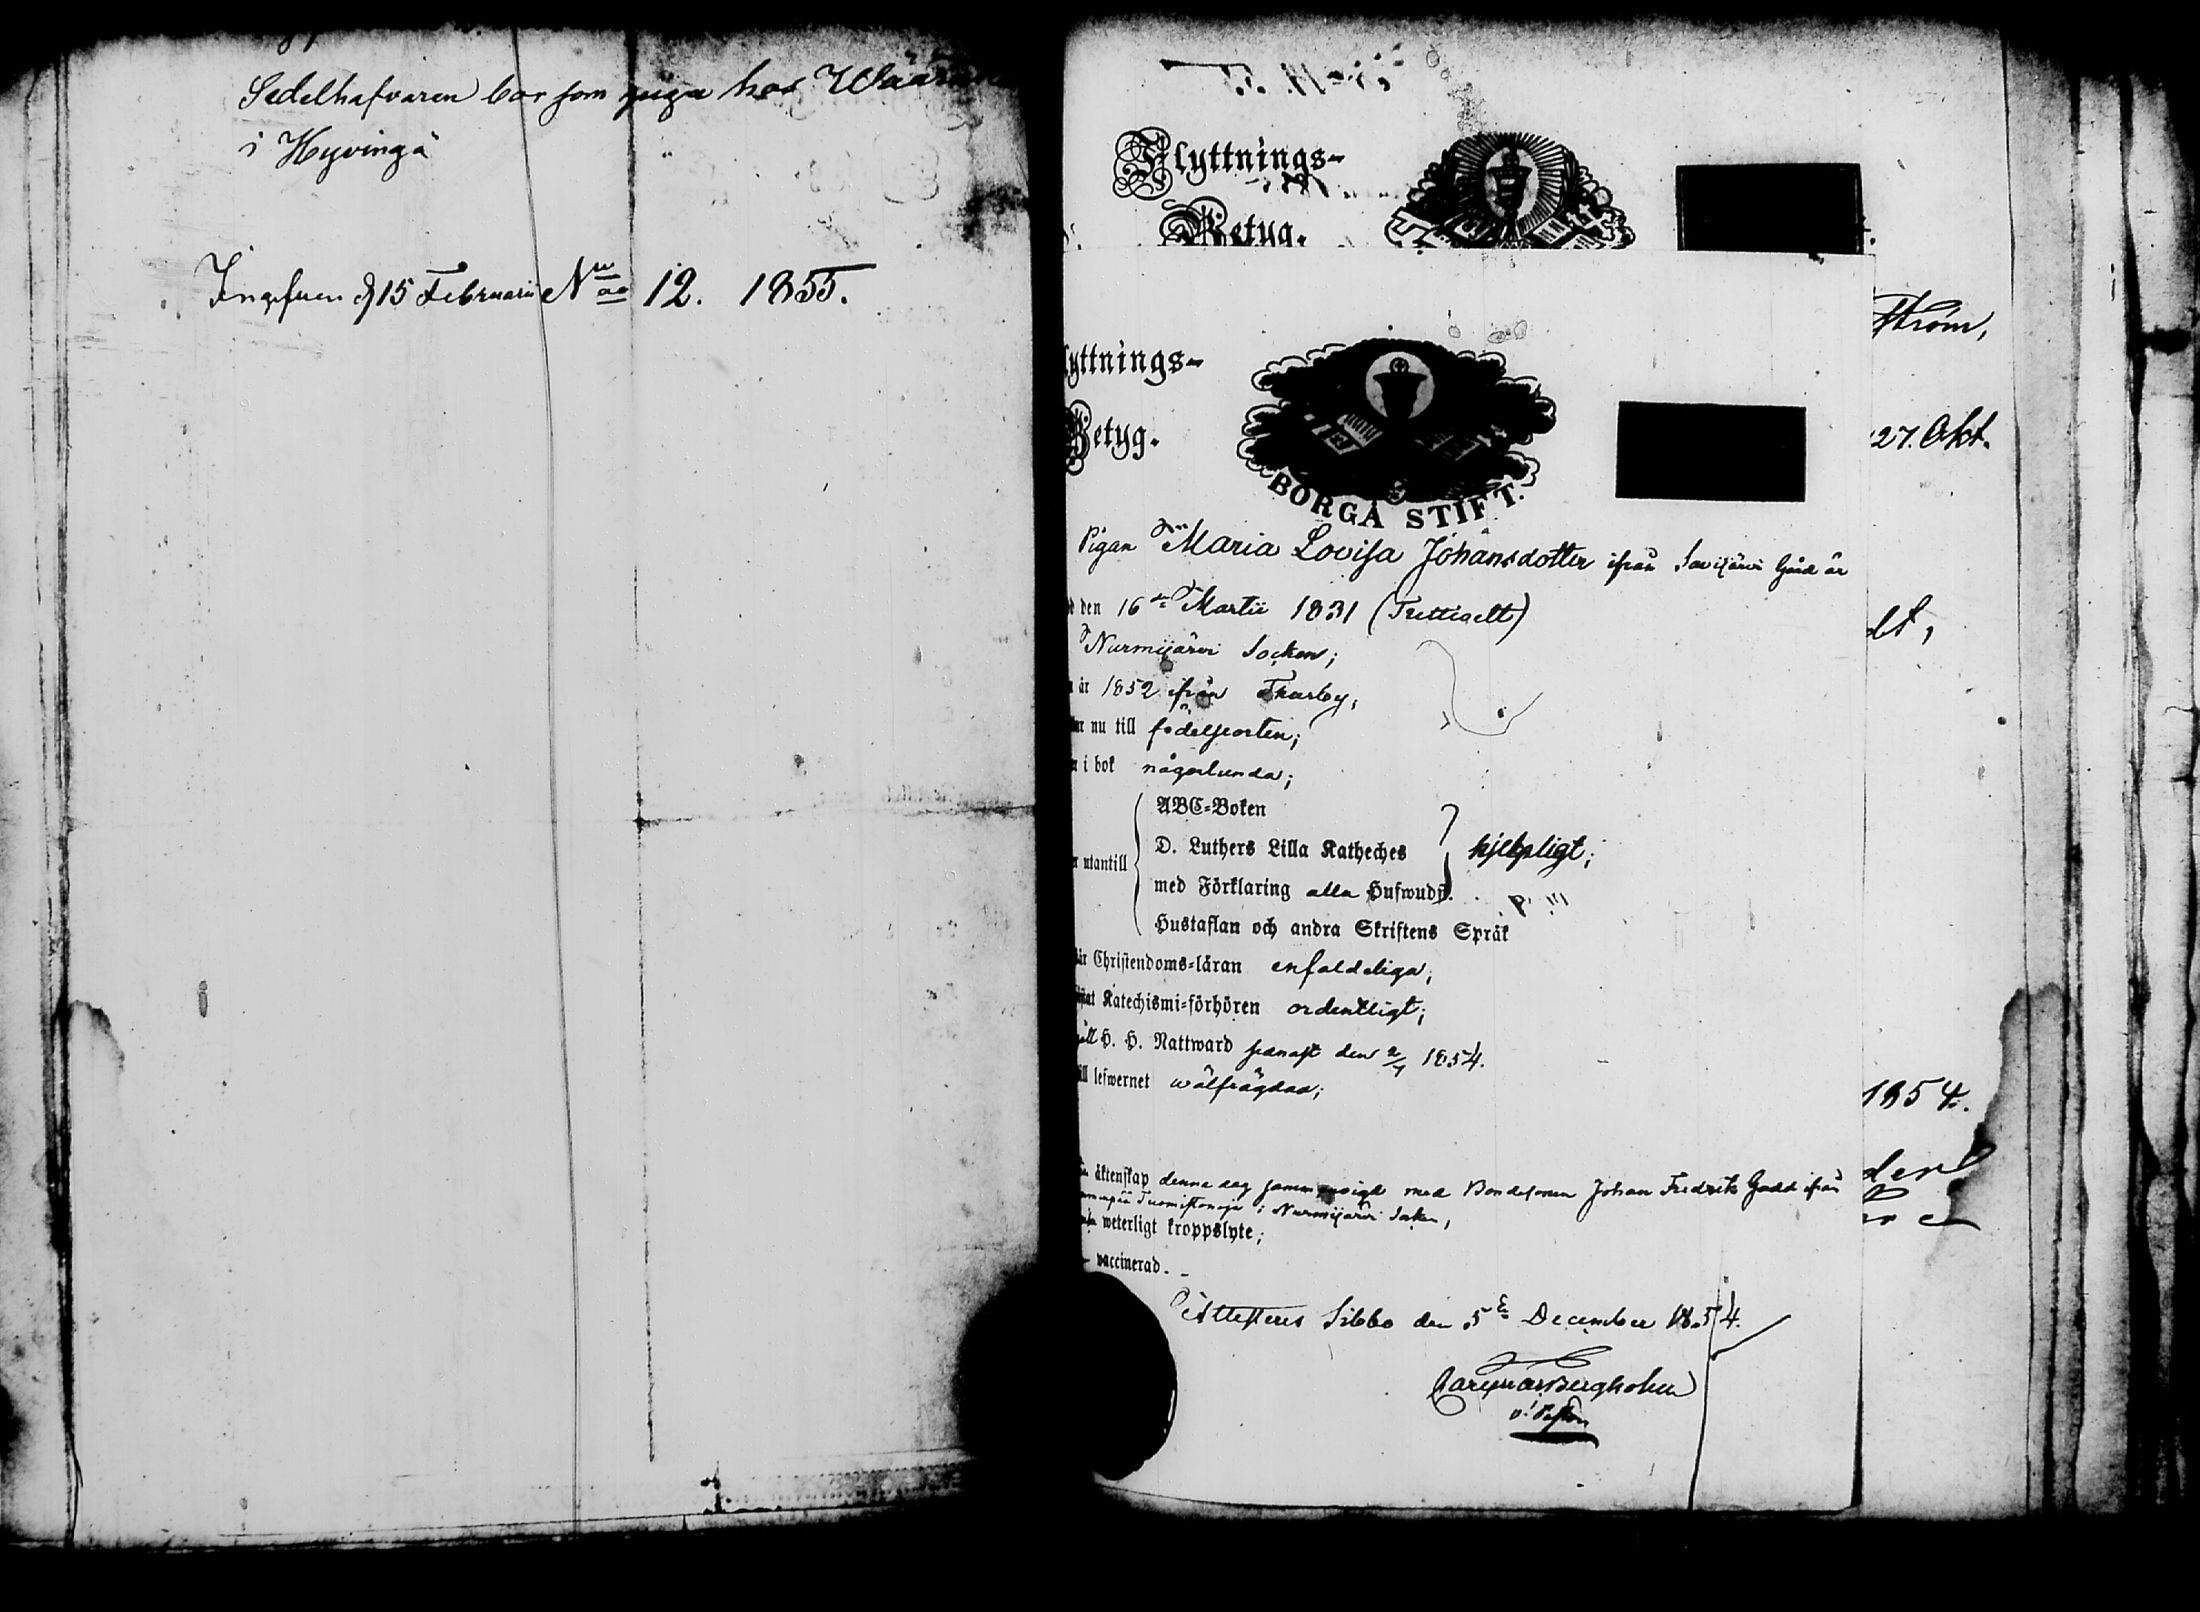 Sedelhafvaren bor som piga hos
i Hyvingä
d 15 Februarii No 12. 1855.
Flyttnings-
Betyg.
ström,
yttnings-
27. Okt.
Betyg.
BORGÅ STIFT.
Pigan Maria Lovisa Johansdotter ifrån Savijärvi Gård är
den 16de Martii 1831 (Trettioett)
dt,
Nurmijärvi Socken;
år 1852 ifrån Thusby,
nu till födelseorten;
i bok någorlunda;
ABC-Boken
D. Luthers Lilla Katheches
hjelpligt;
utantill
med Förklaring alla Hufwudst.
Hustaflan och andra Skriftens Språk
Christendoms-läran enfaldeliga;
Katechismi-förhören ordentligt;
H. H. Nattward senast den 2/7 1854.
till lefwernet wälfrägdad;
1854.
äktenskap denna dag sammanvigd med Bondesonen Johan Fredrik Gadd ifrån
i Nurmijärvi Socken,
weterligt kroppslyte;
vaccinerad.
Attesteras Sibbo den 5te December 1854.
Bergholm
v. Pastor